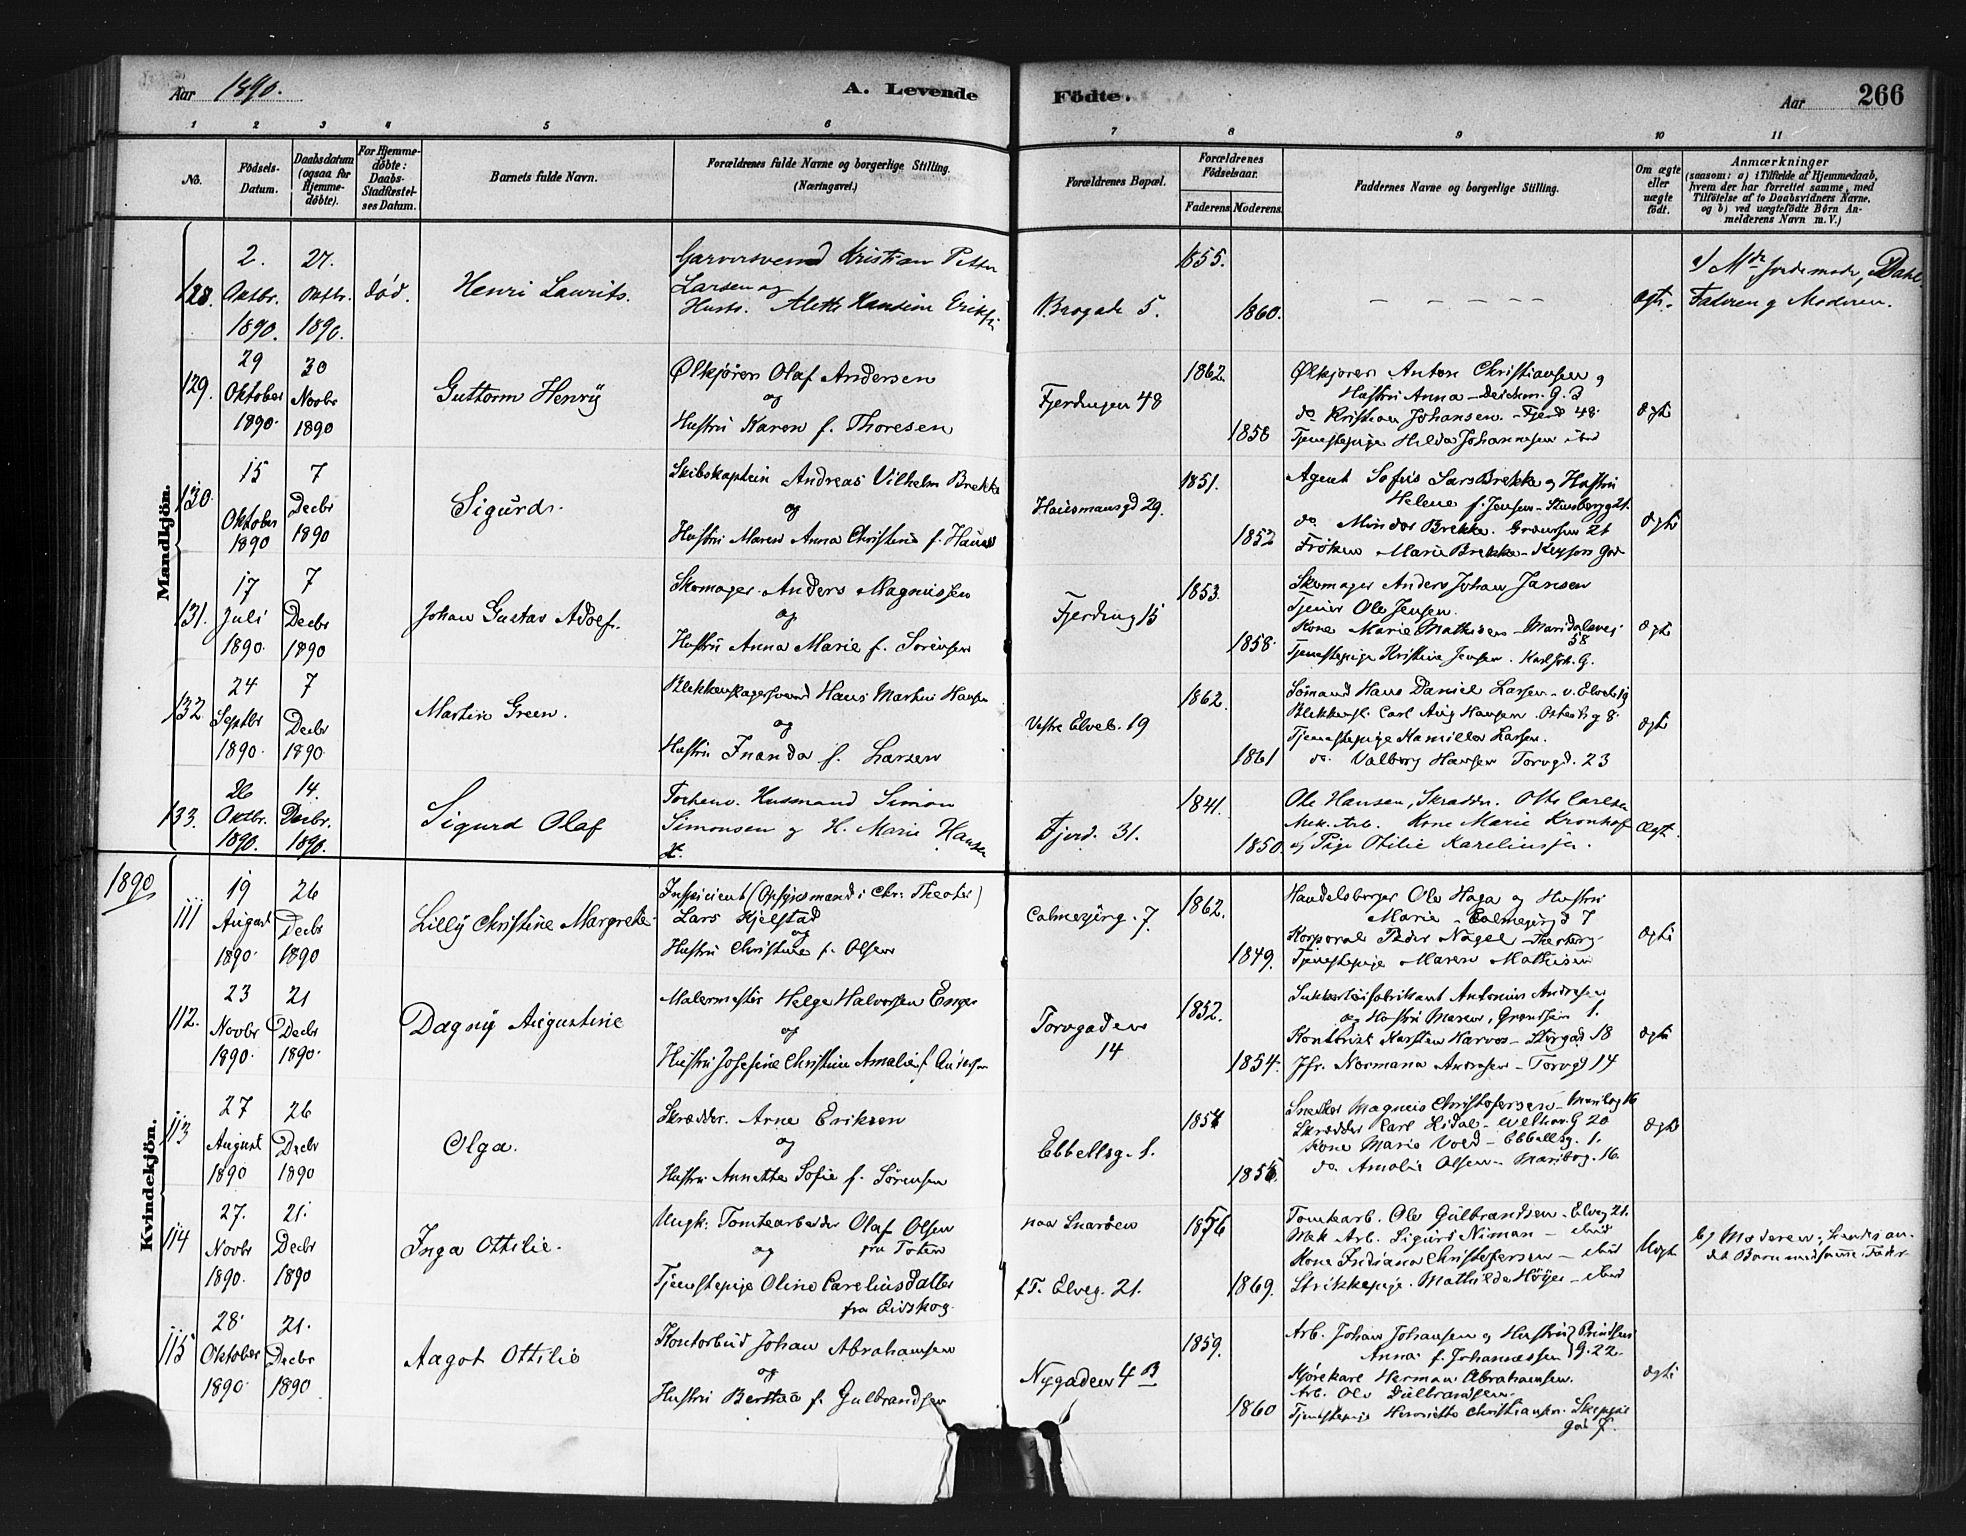 Aar 1890.
A. Levende Födte.
Aar
266
1 2 3 4 5 6 7 8 9 10 11
No.
Födsels-Datum.
Daabsdatum (ogsaa for Hjemme-döbte).
For Hjemme-døbte: Daabs-Stadfæstel-ses Datum.
Barnets fulde Navn.
Forældrenes fulde Navne og borgerlige Stilling. (Næringsvei.)
Forældrenes Bopæl.
Forældrenes Födselsaar.
Faderens. Moderens.
Faddernes Navne og borgerlige Stilling.
Om ægte eller uægte födt.
Anmærkninger
(saasom: a) i Tilfælde af Hjemmedaab, hvem der har forrettet samme, med Tilföielse af to Daabsvidners Navne. og b) ved uægtefödte Börn An-melderens Navn m. V.)
Mandkjön.
128. 2. Oktbr. 1890. 27. Oktbr. 1890. død. Henri Laurits.
Garversvend Kristian Petter
Larsen og
Hustr. Alette Hansine
Brogade 5. 1855. 1860.
ægte.
Jordemoder, Dahl.
Faderen og Moderen.
129. 29 Oktober 1890. 30 Novbr 1890 Guttorm Henry
Ølkjører Olaf Andersen
og
Hustru Karen f. Thoresen
Fjerdingen 48 1862. 1858
Ølkjører Anton Christiansen og
Hustru Anna - Deichm. G. 3
do Kristian Johansen - Fjerd 48.
Tjenestepige Hilda Johannesen ibid
ægte
130. 15 Oktober 1890 7 Decbr 1890 Sigurd.
Skibskaptein Andreas Vilhelm Brekke
og
Hustru Maren Anna Christine f.
Hausmansgd 29. 1851. 1852
Agent Sofus Lars Brekke og Hustru
Helene f. Jensen
do. Brekke.
Frøken Marie Brekke
ægte
131. 17 Juli 1890. 7 Decbr 1890 Johan Gustav Adolf.
Skomager. Anders Magnussen
og
Hustru Anna Marie f. Sørensen
Fjerding 15 1853. 1858.
Skomager Anders Johan Jansen
Tjener Ole Jensen.
Kone Marie Mathisen - Maridalsvej. 58
Tjenestepige Kristine Jensen. Karl Joh. G.
ægte
132 24 Septbr 1890. 7 Decbr 1890. Martin Green.
Blikkenslagersvend Hans Martin Hansen
og
Hustru Inanda f. Larsen
Vestre Elveb. 19 1862. 1861
Sømand Hans Daniel Larsen - v. Elveb 19
Blikkensl. Carl Aug Hansen
Tjenestepige Kamilla Larsen.
do. Valborg Hansen Torvgd. 23
ægte
133. 26 Oktbr. 1890. 14. Decbr. 1890. Sigurd Olaf
Husmand Simon
Simonsen og H. Marie Hansen
Fjerd. 31. 1841. 1850.
Ole Hansen, Skrædder. Otto Carlsen
Mek. Arb. Kone Marie Kronhof
og Pige Otilie
Ægt.
1890
Kvindekjön.
111 19 August 1890. 26 Decbr 1890 Lilly Christine Margrete
Inspicient (Opsynsmand i Chr: Theater)
Lars Kjelstad
og
Hustru Christine f. Olsen
Calmeyerg. 7. 1862. 1849.
Handelsborger Ole Haga og Hustru
Marie - Calmeyergd 7
Korporal Peder Nagel
Tjenestepige Maren Mathisen
ægte
112. 23 Novbr 1890. 21 Decbr 1890. Dagny Augustine
Malermester Helge Halvorsen Enger
og
Hustru Josefine Christine Amalie f. Andersen
Torvgaden 14 1852. 1854.
Sukkertøifabrikant Antonius Andresen
og Hustru Maren, Grønlsleir 1.
Kontorist Karsten - Storgad 18
Jfr. Normana Andresen - Torvgd 14
ægte
113 27 August 1890 26 Decbr 1890 Olga.
Skrædder. Arne Eriksen
og
Hustru Annette Sofie f. Sørensen
Ebbellsg. 1.
Snedker Magnus Christofersen - Maribog 16
Skrædder Carl
Kone Marie Vold - Ebbellsg. 1.
do. Amalie Olsen - Maribog. 16.
ægte
114 27. Novbr 1890. 21. Decbr 1890 Inga Ottilie.
Ungk. Tomtearbeider Olaf Olsen
og fra Toten
Tjenestepige Oline Careliusdatter
fra Eidskog.
paa Snarøen
f. T. Elveg. 21. 1869.
Tomtearb. Ole Gulbrandsen - Elveg 21.
Mek Arb. Sigurd Niman - ibid
Kone Indiana Christofersen - ibid
Strikkepige. Mathilde Høyer - ibid
Uægte
b) Moderen, hendes an-
det Barn med samme Fader
115 28. Oktober 1890. 21. Decbr 1890 Aagot Ottilie
Kontorbud Johan Abrahamsen
og
Hustru Berthea f. Gulbrandsen
Nygaden 4 B 1859. 1860
Arb. Johan Johansen og Hustru } Prindsens
Anna f. Johannessen } G. 22.
Kjørekarl Herman Abrahamsen.
Arb. Ole Gulbrandsen.
Tjenestepige Henriette Christiansen. Skippergad 7.
ægte